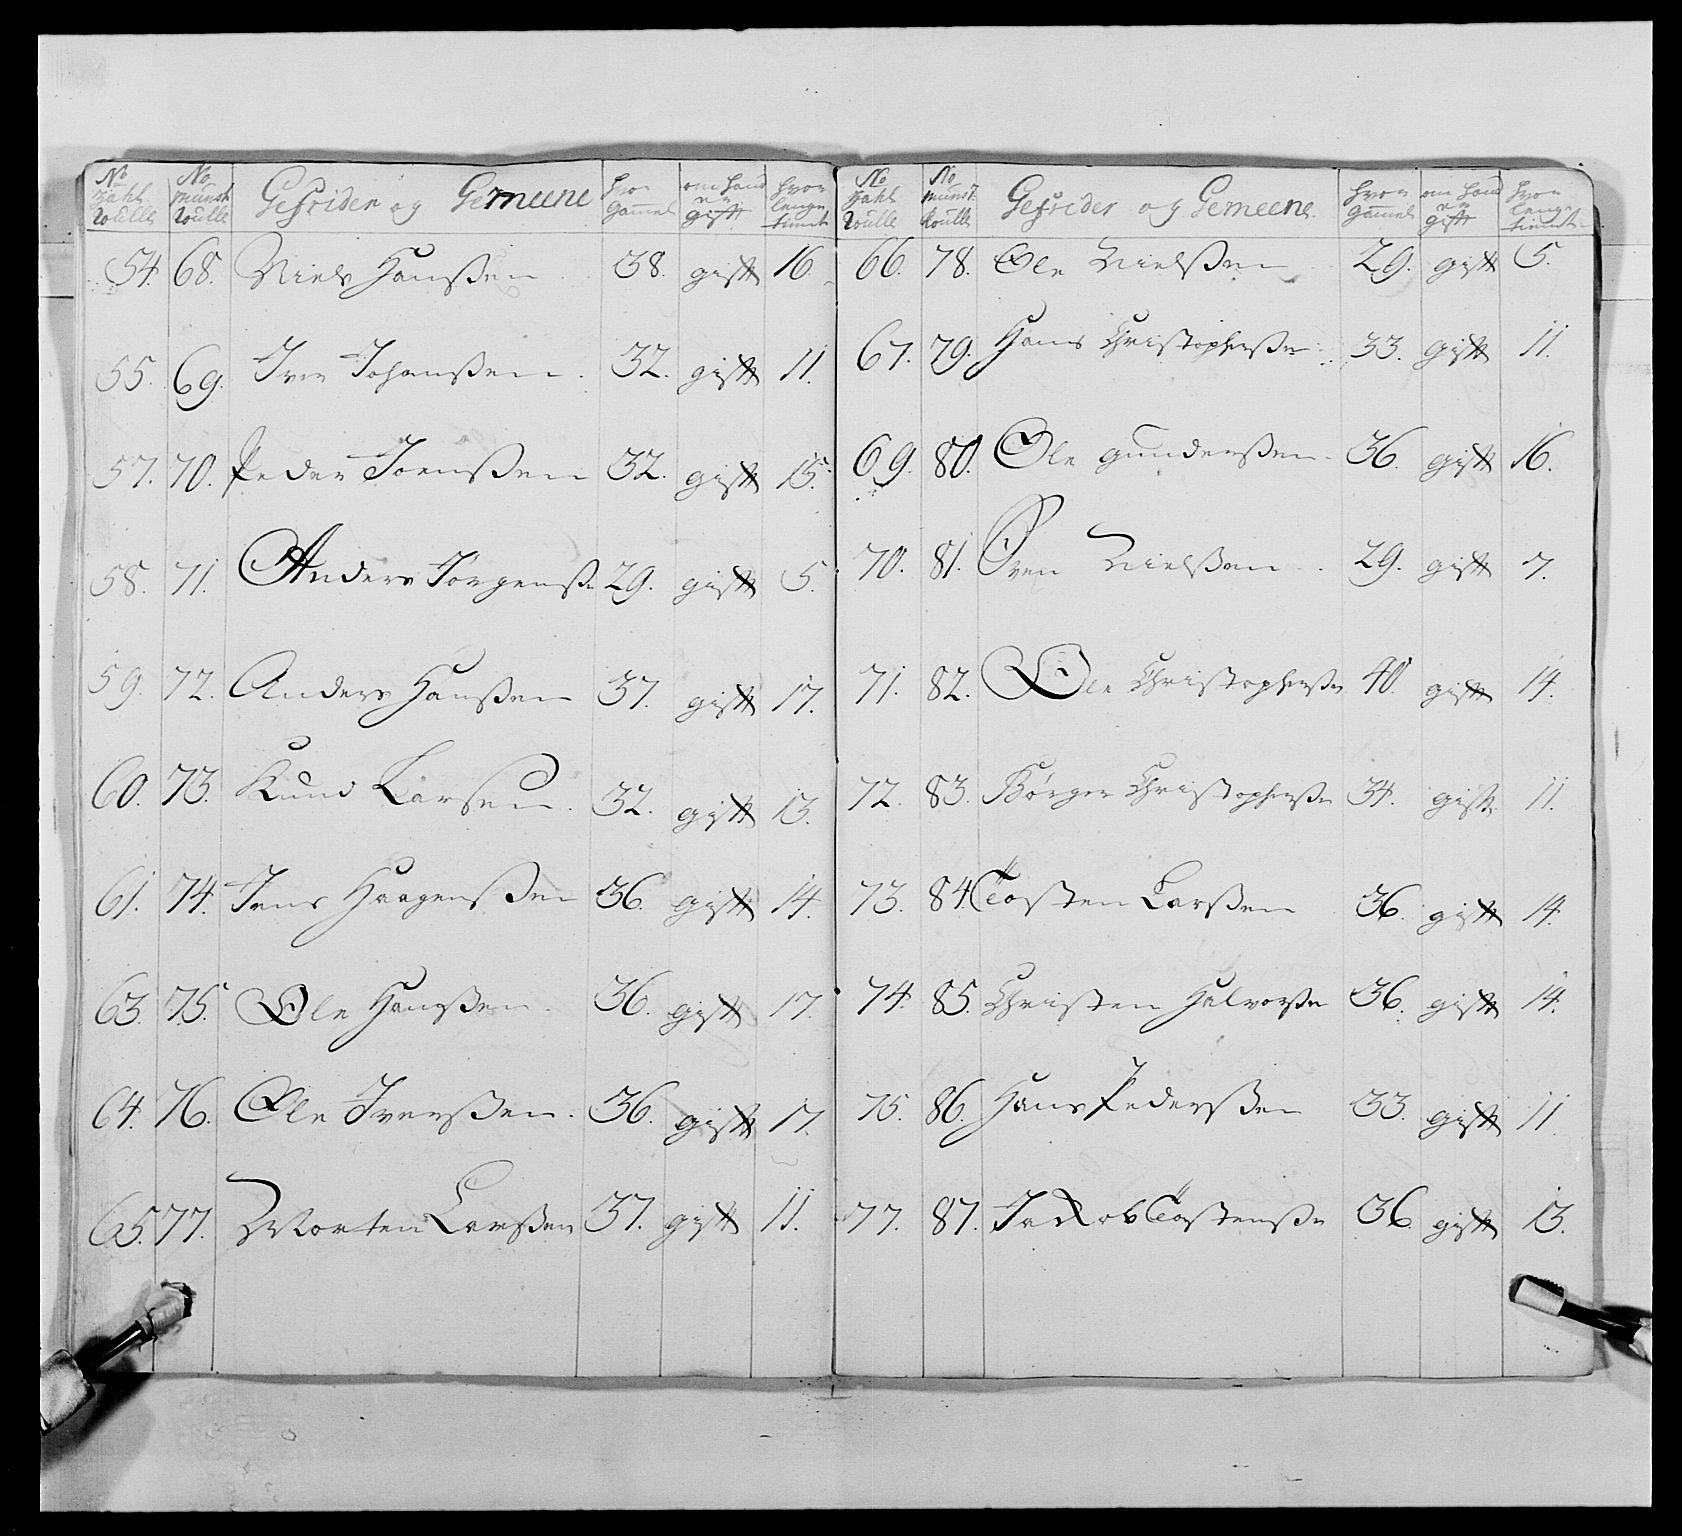 No Zahl Roulle | No Munst Roulle | Gefrider og Gemeene | hvor Gammel | om hand er Gifft | hvor lenge tient
54. 68. Niels Hanßen 38. gifft 16.
55. 69. Iver Johanßen. 32. gifft 11.
57. 70. Peder Joenßen 32. gifft 15.
58. 71. Anders Jørgenß 29. gifft 5.
59. 72. Anders Hanßen 37. gifft 17.
60. 73. Knud Larsen. 32. gifft 13.
61. 74. Jens Haagenßen 36. gifft 14.
63. 75. Ole Hanßen. 36. gifft 17.
64. 76. Ole Iverßen. 36. gifft 17.
65. 77. Morten Larßen 37. gifft 11.
No Zahl Roulle | No Munst. Roulle | Gefrider og Gemeene. | hvor Gammel | om hand er gifft | hvor lenge tient
66. 78. Ole Nielßen 29. gifft 5.
67. 79. Hans Christopherße. 33. gifft 11.
69. 80. Ole Gunderßen. 36. gifft 16.
70. 81. Sven Nielßen. 29. gifft 7.
71. 82. Ole Christopherße 40. gifft 14.
72. 83. Børger Christopherße 34. gifft 11.
73. 84. Tosten Larßen 36. gifft 14.
74. 85. Christen Halvorße 36. gifft 14.
75. 86. Hans Pederßen 33. gifft 11
77. 87. Jackob Tostenße 36. gifft 13.